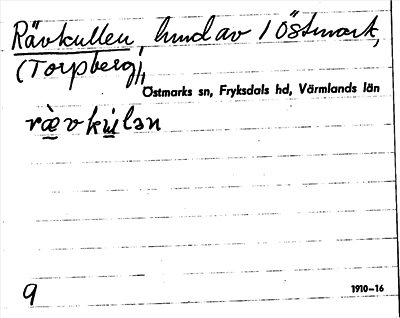 Rävkullen, hund av 1 Östmark,
(Torpberg),
Östmarks sn, Fryksdals hd, Värmlands län
ræ̀vkúlən
9
1910–16